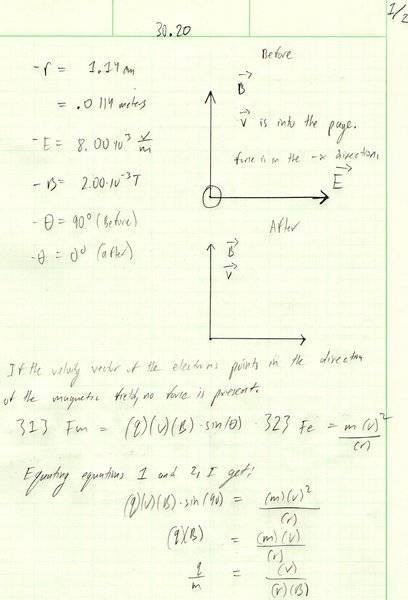 1/2
30.20
- r = 1.14 cm
= .0114 meters
- E = 8.00·10³ V/m
- B = 2.00·10⁻³ T
- θ = 90° (Before)
- θ = 0° (after)
Before
B
V is into the page.
force is in the -x direction.
E
After
B
V
If the velocity vector of the electrons points in the direction
of the magnetic field, no force is present.
313 Fm = (q)(v)(B)·sin(θ) · 323 Fe = m(v)²/(r)
Equating equations 1 and 2, I get:
(q)(v)(B)·sin(90) = (m)(v)²/(r)
(q)(B) = (m)(v)/(r)
q/m = (v)/(r)(B)